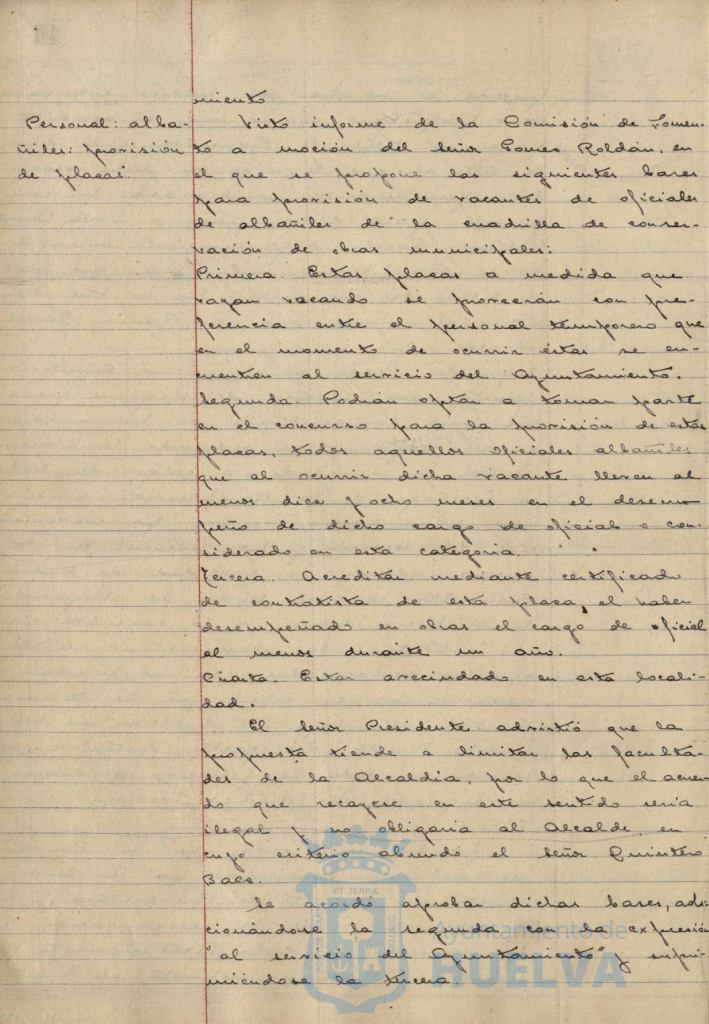 miento
Personal: alba-
ñiles: provisión
de plazas.
Visto informe de la Comisión de Fomen-
to a moción del Señor Gomez Roldán, en
el que se propone las siguientes bases
para provisión de vacantes de oficiales
de albañiles de la cuadrilla de conser-
vación de obras municipales:
Primera. Estas plazas a medida que
vayan vacando se proveerán con pre-
ferencia entre el personal temporero que
en el momento de ocurrir éstas se en-
cuentren al servicio del Ayuntamiento.
Segunda. Podrán optar a tomar parte
en el concurso para la provisión de estas
plazas, todos aquellos oficiales albañiles
que al ocurrir dicha vacante lleven al
menos diez y ocho meses en el desem-
peño de dicho cargo de oficial o con-
siderado en esta categoria.
Tercera. Acreditar mediante certificado
de contratista de esta plaza, el haber
desempeñado en obras el cargo de oficial
al menos durante un año.
Cuarta. Estar avecindado en esta locali-
dad.
El Señor Presidente advirtió que la
propuesta tiende a limitar las faculta-
des de la Alcaldia, por lo que el acuer-
do que recayese en este sentido seria
ilegal y no obligaria al Alcalde, en
cuyo criterio abundó el Señor Quintero
Baez.
Se acordó aprobar dichas bases, adi-
cionándose la segunda con la expresión
"al servicio del Ayuntamiento" y supri-
miéndose la tercera.
Ayuntamiento de
HUELVA